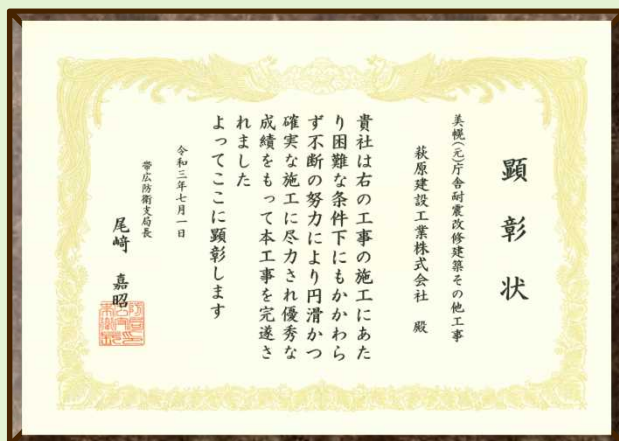 顕彰状
美幌(元)庁舎耐震改修建築その他工事
萩原建設工業株式会社 殿
貴社は右の工事の施工にあた
り困難な条件下にもかかわら
ず不断の努力により円滑かつ
確実な施工に尽力され優秀な
成績をもって本工事を完遂さ
れました
よってここに顕彰します
令和三年七月一日
帯広防衛支局長
尾﨑 嘉昭